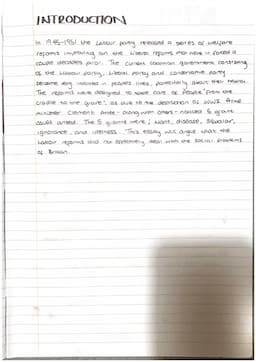 INTRODUCTION
In 1945-1951 the Labour party released a series of welfare
reforms improving on the Liberal reforms that were in forced a
couple decades prior. The current coalition government consisting
of the Labour party, Liberal party and conservative party
became very involved in peoples lives, particularly about their health.
The reforms were designed to take care of people 'from the
cradle to the grave', as due to the destruction of WW2 Prime
minister Clement Attlee - along with others - noticed 5 giants
could attend. The 5 giants were; want, disease, squalor,
ignorance, and idleness. This essay will argue that the
Labour reforms did not effectively deal with the social problems
of Britain.